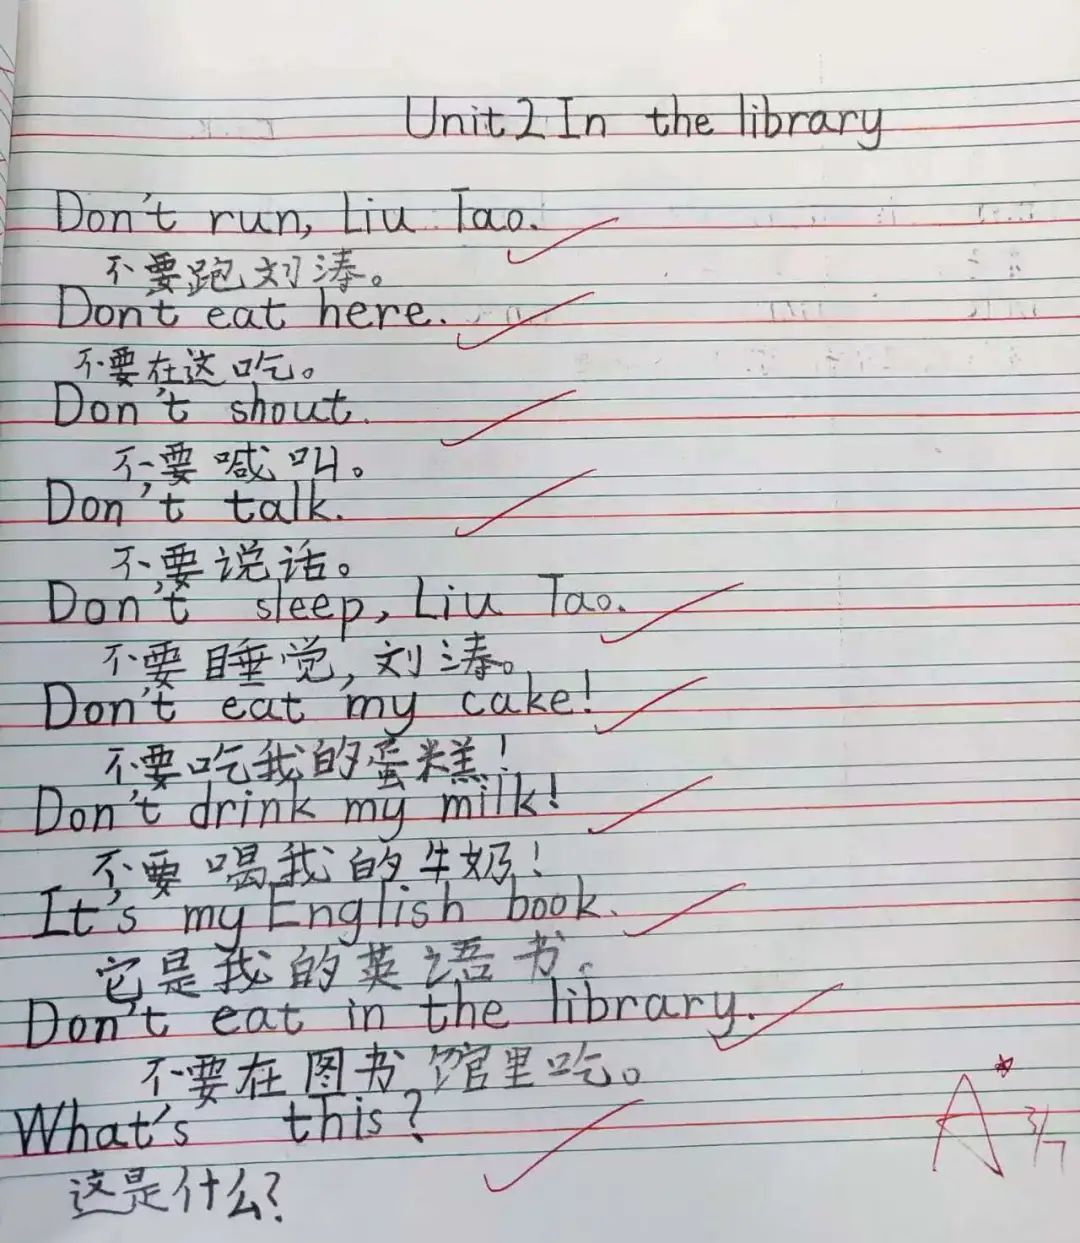 Unit 2 In the library
Don't run, Liu Tao.
不要跑刘涛。
Dont eat here.
不要在这吃。
Don't shout.
不要喊叫。
Don't talk.
不要说话。
Don't sleep, Liu Tao.
不要睡觉,刘涛。
Don't eat my cake!
不要吃我的蛋糕!
Don't drink my milk!
不要喝我的牛奶!
It's my English book.
它是我的英语书。
Don't eat in the library.
不要在图书馆里吃。
What's this?
A 3/7
这是什么?